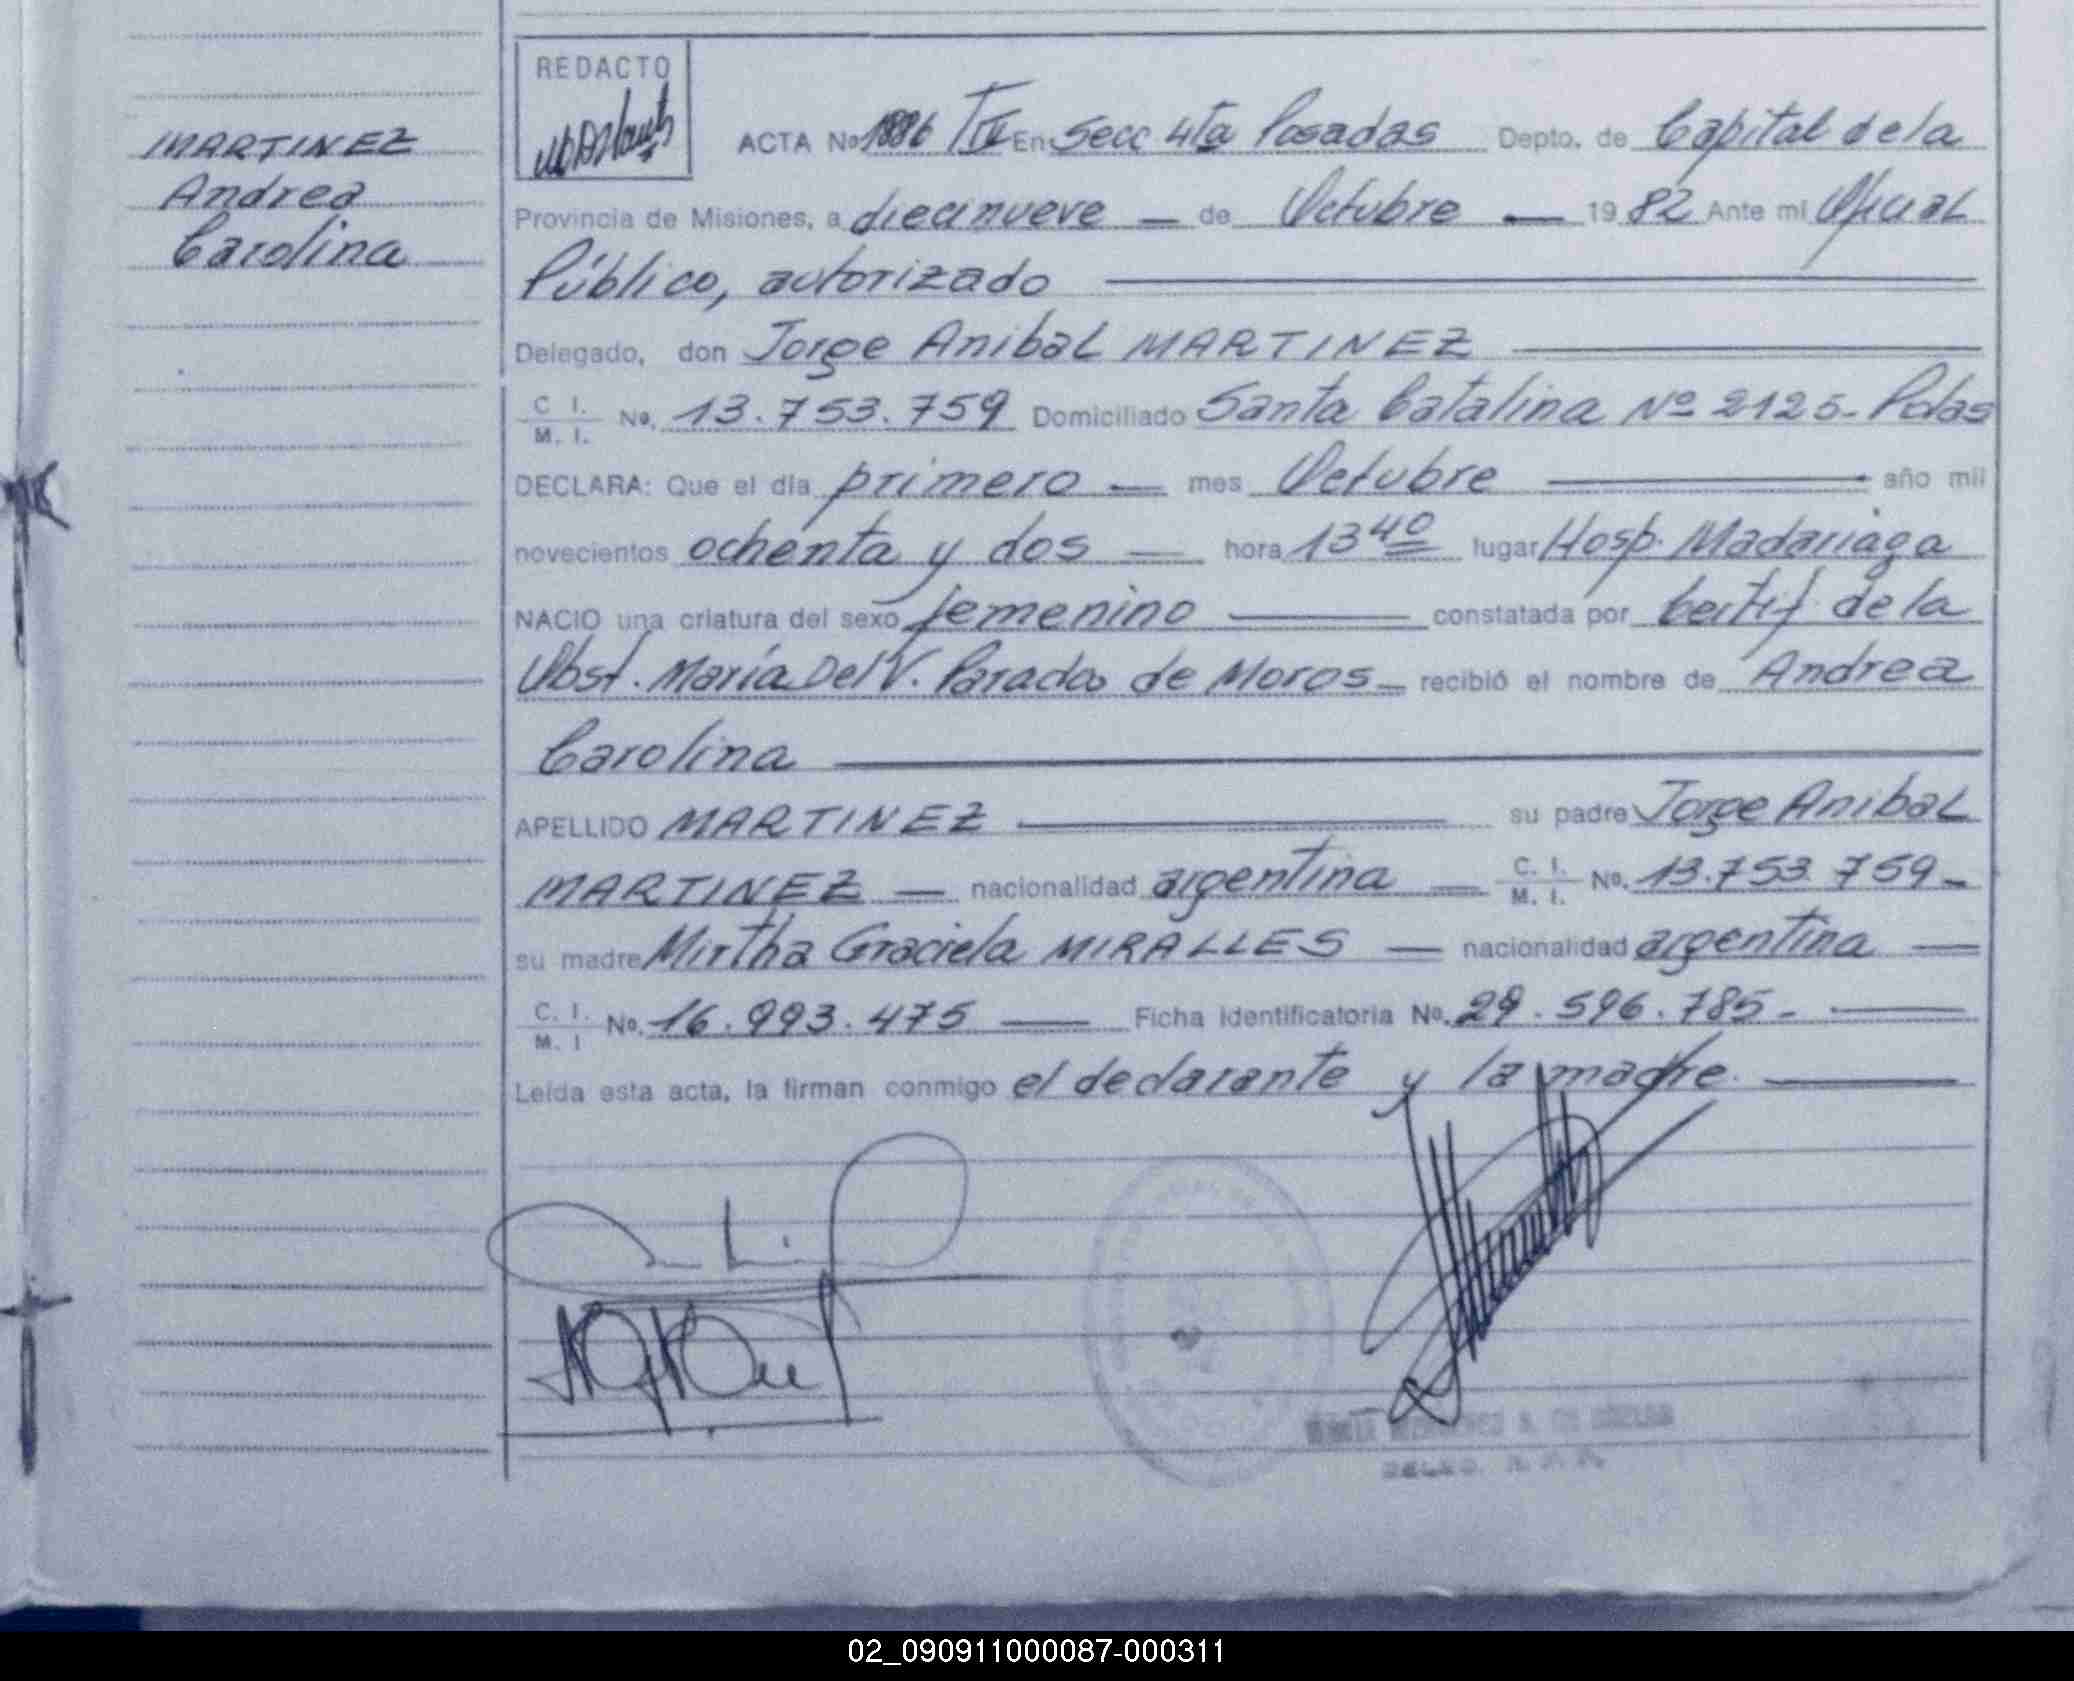 MARTINEZ
Andrea
Carolina
REDACTO
ACTA No 1886 En Secc 4ta Posadas Depto. de Capital de la
Provincia de Misiones, a diecinueve — de Octubre — 1982 Ante mi Oficial
Público, autorizado
Delegado, don Jorge Anibal MARTINEZ
C. I. / M. I. No. 13.753.759 Domiciliado Santa Catalina Nº 2125- Pdas
DECLARA: Que el día primero — mes Octubre — año mil
novecientos ochenta y dos — hora 13 40 lugar Hosp. Madariaga
NACIO una criatura del sexo femenino — constatada por Certif. de la
Obst. María Del V. Parada de Moros — recibió el nombre de Andrea
Carolina
APELLIDO MARTINEZ — su padre Jorge Anibal
MARTINEZ — nacionalidad argentina — C. I. / M. I. No. 13.753.759-
su madre Mirtha Graciela MIRALLES — nacionalidad argentina —
C. I. / M. I No. 16.993.475 — Ficha Identificatoria No. 29.596.785- —
Leída esta acta, la firman conmigo el declarante y la madre. —
02_090911000087-000311